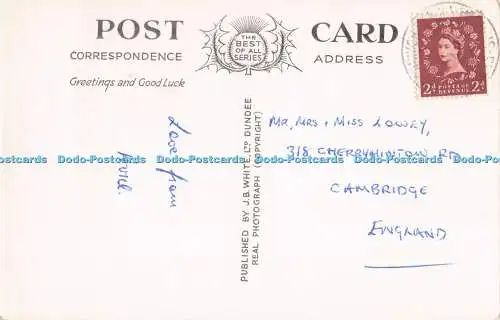 POST CARD
THE
BEST
OF ALL
SERIES
CORRESPONDENCE
ADDRESS
Greetings and Good Luck
2d POSTAGE REVENUE 2d
Love from
PUBLISHED BY J.B. WHITE, LTD DUNDEE
REAL PHOTOGRAPH (COPYRIGHT)
MR, MRS, MISS LOWEY,
318 CHERRYHINTON RD
CAMBRIDGE
ENGLAND
Dodo-Postcards Dodo-Postcards Dodo-Postcards Dodo-Postcards Dodo-Postcards Dodo-Postcards
Dodo-Postcards Dodo-Postcards Dodo-Postcards Dodo-Postcards Dodo-Postcards Dodo-Postcards